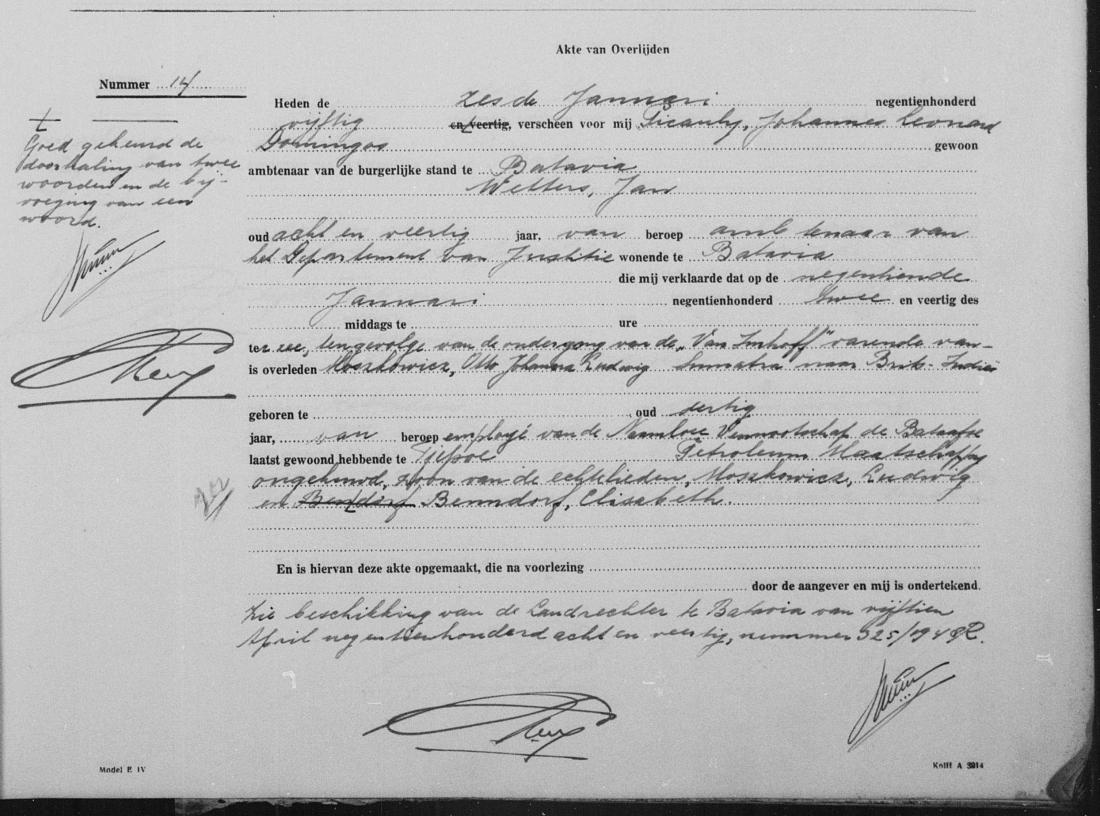 Akte van Overlijden
Nummer 14
Heden de zesde Januari negentienhonderd
vijftig en/veertig, verscheen voor mij Picauly, Johannes Leonard
Domingos gewoon
ambtenaar van de burgerlijke stand te Batavia
Welters, Jan
oud acht en veertig jaar, van beroep ambtenaar van
het Departement van Justitie wonende te Batavia
die mij verklaarde dat op de negentiende
Januari negentienhonderd twee en veertig des
middags te ure
ter zee, tengevolge van de ondergang van de "Van Imhoff" varende van
is overleden Moszkowicz, Otto Johannes Ludwig Sumatra naar Brits-Indië
geboren te oud dertig
jaar, van beroep employé van de Naamloze Vennootschap de Bataafse
laatst gewoond hebbende te Tjepoe Petroleum Maatschappij
ongehuwd, zoon van de echtelieden, Moszkowicz, Ludwig
en Bendorf Benndorf, Elisabeth.
En is hiervan deze akte opgemaakt, die na voorlezing
door de aangever en mij is ondertekend.
Zie beschikking van de Landrechter te Batavia van vijftien
April negentienhonderd acht en veertig, nummer 325/1948R.
Goed gekeurd de
doorhaling van twee
woorden en de bij-
voeging van een
woord.
Model E IV
Kolff A 3914